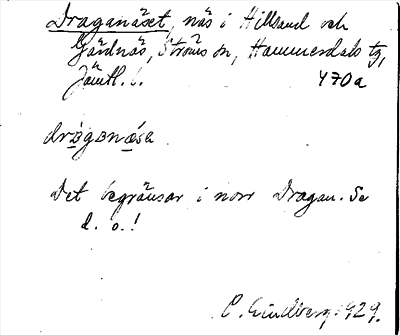 Draganäset, näs i Hillsand och
Gärdnäs, Ströms sn, Hammerdals tg,
Jämtl. l. 470a
drògɐnæ̀sɐ
Det begränsar i norr Dragan. Se
d. o.!
C. Lindberg 1929.